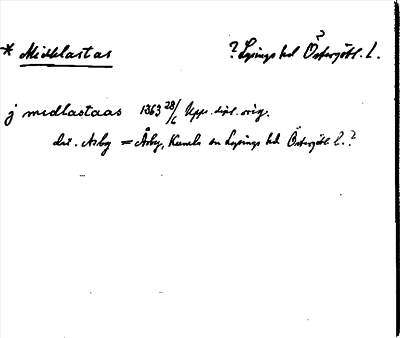 * Midklastas ? Lysings hd Östergötl. l.
?
j medlastaas 1363 28/6 Upps. dipl. orig.
dit. Arby = Åby, Kumla sn Lysings hd Östergötl l.?